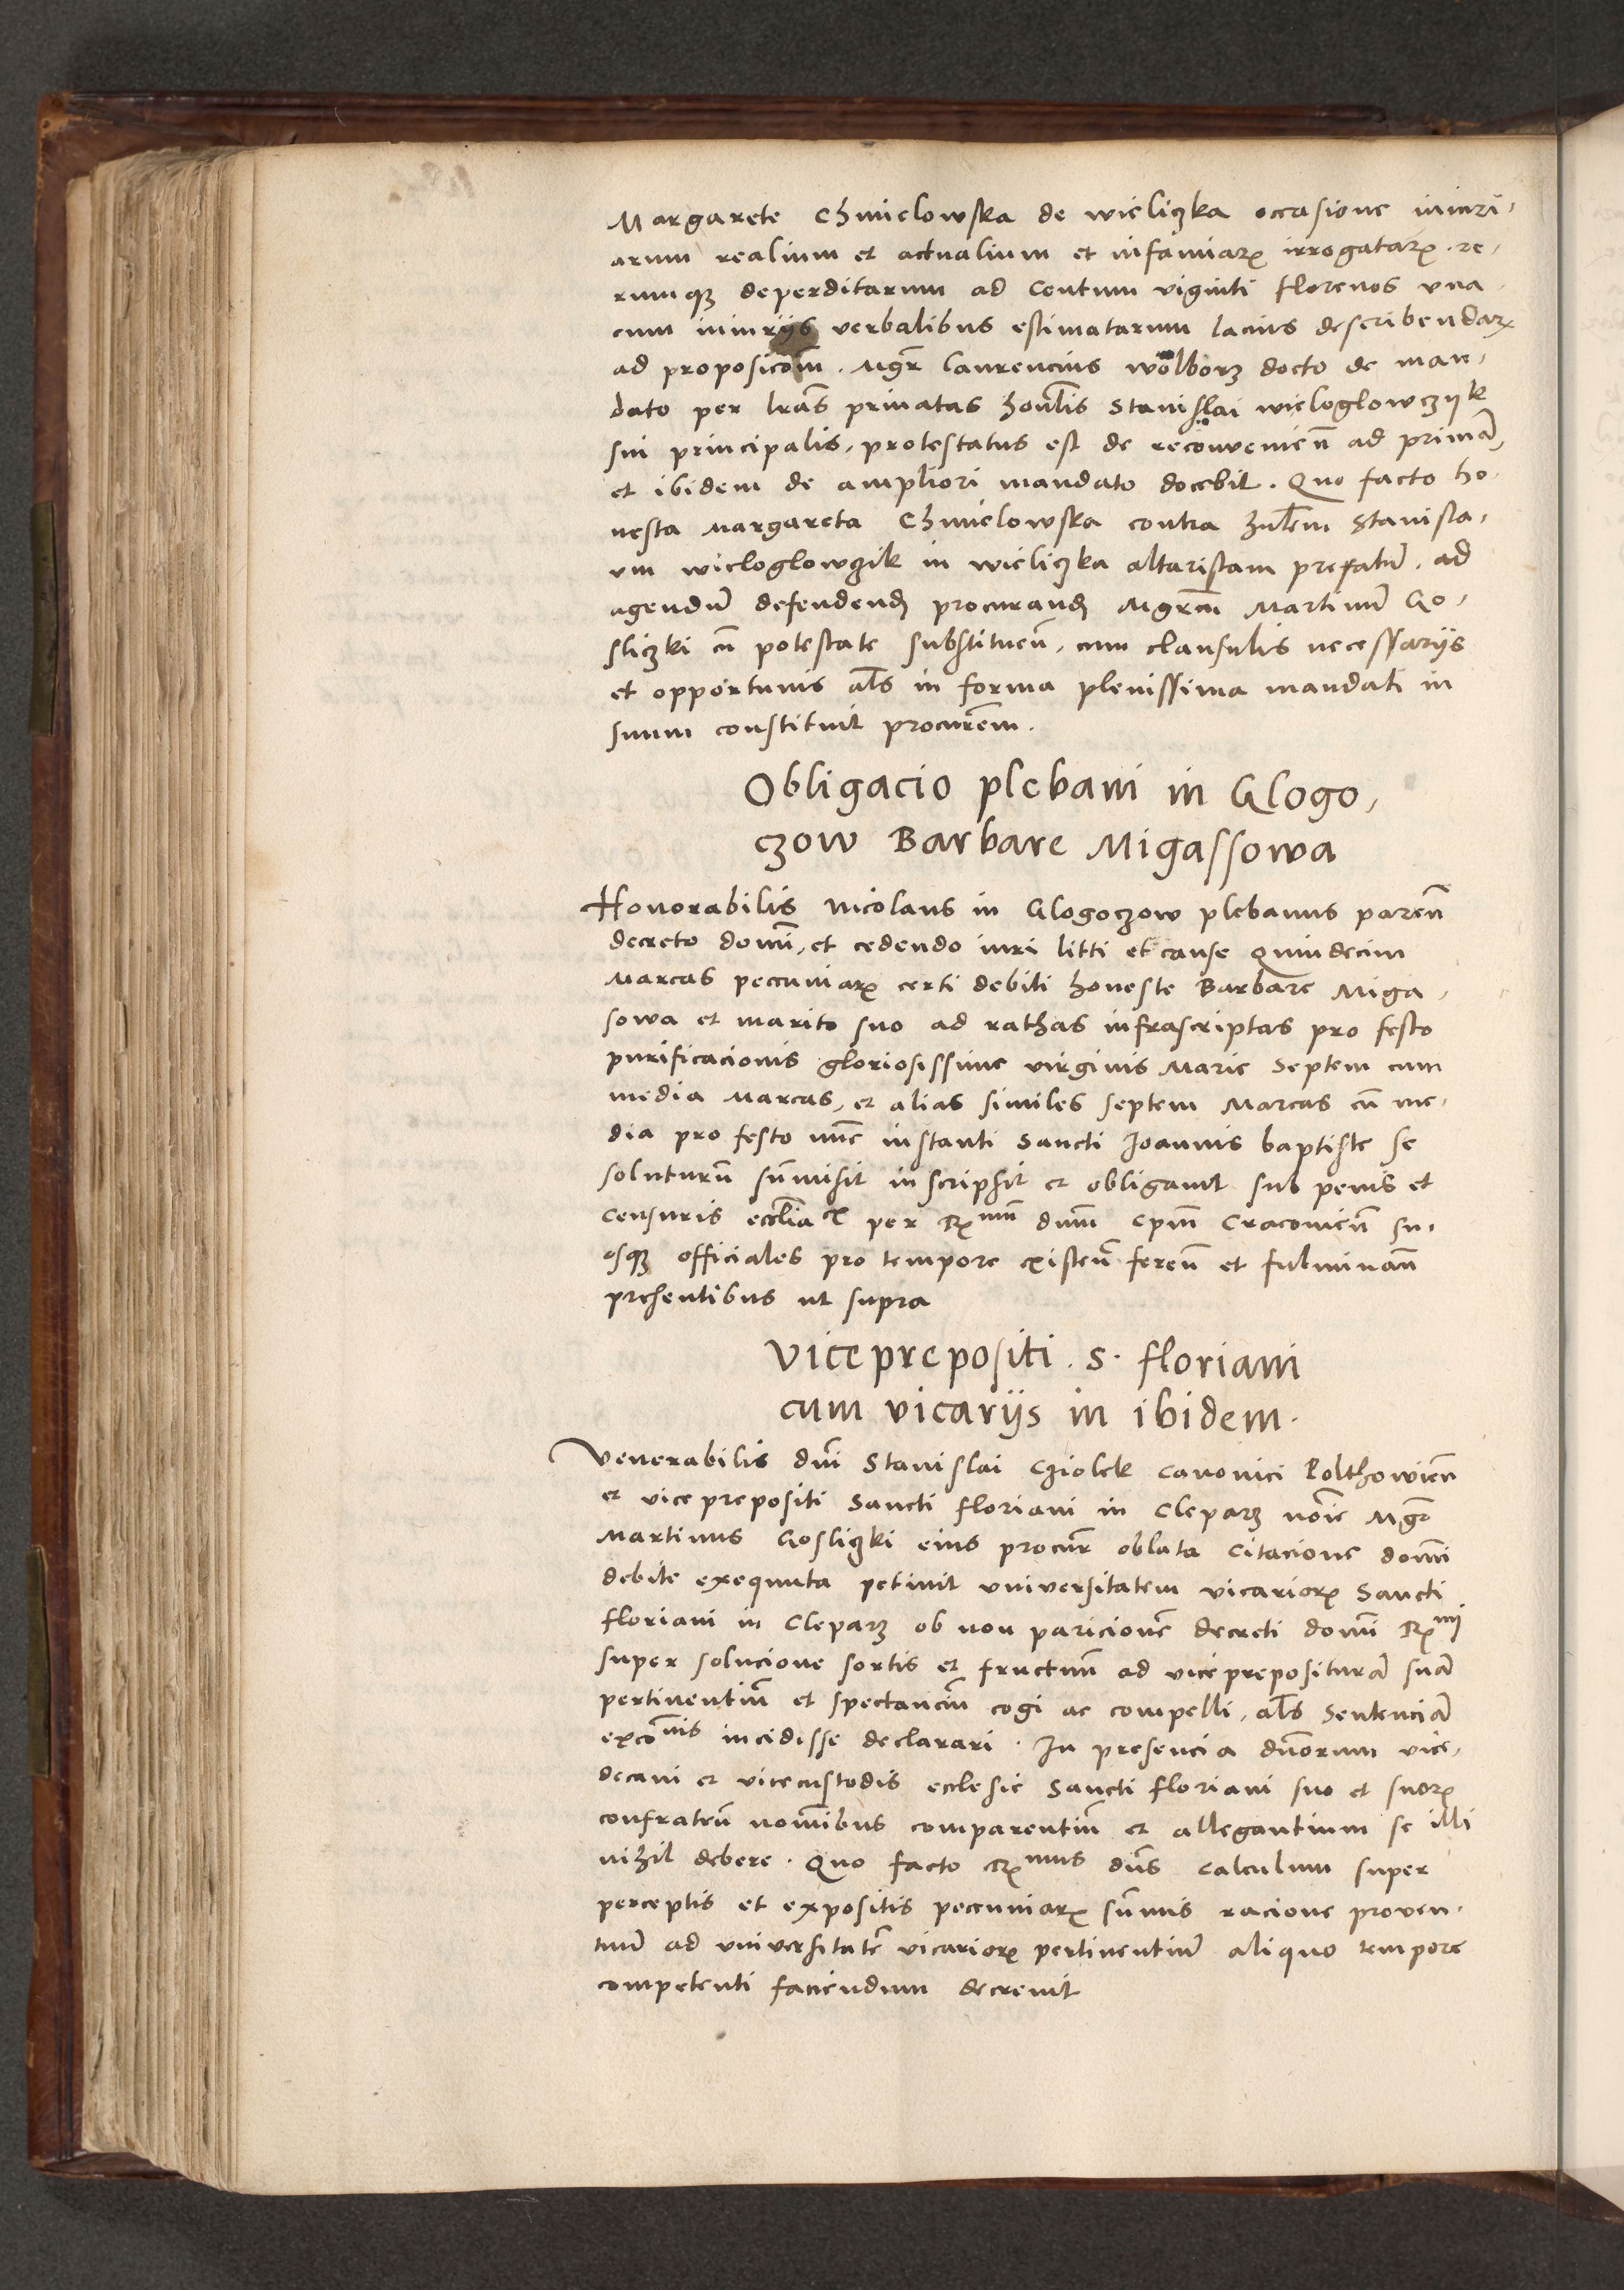 Margarete Chmielowska de wieliczka occasione iniuri-
arum realium et actualium et infamiarꝝ irrogatarꝝ . re-
rumqꝫ deperditarum ad Centum viginti florenos vna
cum iniurijs verbalibus estimatarum lacius describendarꝝ
ad proposicoēm . Mgr̄ Laurencius wolborz docto de man-
dato per lrās priuatas honl̄is Stanislai wieloglowczyk
sui principalis, protestatus est de reconvenien̄ ad primā,
et ibidem de ampliori mandato docebit . Quo facto ho-
nesta Margareta Chmielowska contra hnl̄em Stanisla-
um wieloglowczik in wieliczka altaristam prefatū . ad
agendū defendendꝫ procurandꝫ Mgrm̄ Martinū Go-
sliczki cū potestate substituen̄, cum clausulis necessarijs
et opportunis al̄s in forma plenissima mandati in
suum constituit procurēm .
Obligacio plebani in Glogo-
czow Barbare Migassowa
Honorabilis Nicolaus in Glogoczow plebanus paren̄
decreto domī, et cedendo iuri litti et cause Quindecim
Marcas pecuniarꝝ certi debiti honeste Barbare Miga-
sowa et marito suo ad rathas infrascriptas pro festo
purificacionis gloriosissime virginis Marie Septem cum
media Marcas, et alias similes septem Marcas cū me-
dia pro festo nūc instanti Sancti Joannis baptiste se
soluturū sūmisit inscripsit et obligauit sub penis et
censuris eccl̄ia per Rmū dnm̄ Epm̄ Cracouien̄ su-
osqꝫ officiales pro tempore existen̄ feren̄ et fulminan̄
presentibus ut supra
Viceprepositi . S . floriani
cum vicarijs in ibidem .
Venerabilis dnī Stanislai Cziolek Canonici Polthowien̄
et viceprepositi Sancti floriani in Cleparz noīe Mgr̄
Martinus Gosliczki eius procur̄ oblata Citacione domī
debite exequuta petiuit vniversitatem vicariorꝝ Sancti
floriani in Cleparz ob non paricionē decreti domī Rmi
super solucione sortis et fructuū ad viceprepositurā suā
pertinentiū et spectanciū cogi ac compelli, al̄s Sentenciā
excōnis incidisse declarari . In presencia dnōrum vice-
decani et vicecustodis ecclesie Sancti floriani suo et suorꝝ
confratrū nomībus comparentiū et allegantium se illi
nihil debere . Quo facto Rmus dn̄s calculum super
perceptis et expositis pecuniarꝝ sūmis racione proven-
tuū ad vniversitatē vicariorꝝ pertinentiū aliquo tempore
competenti faciendum decreuit